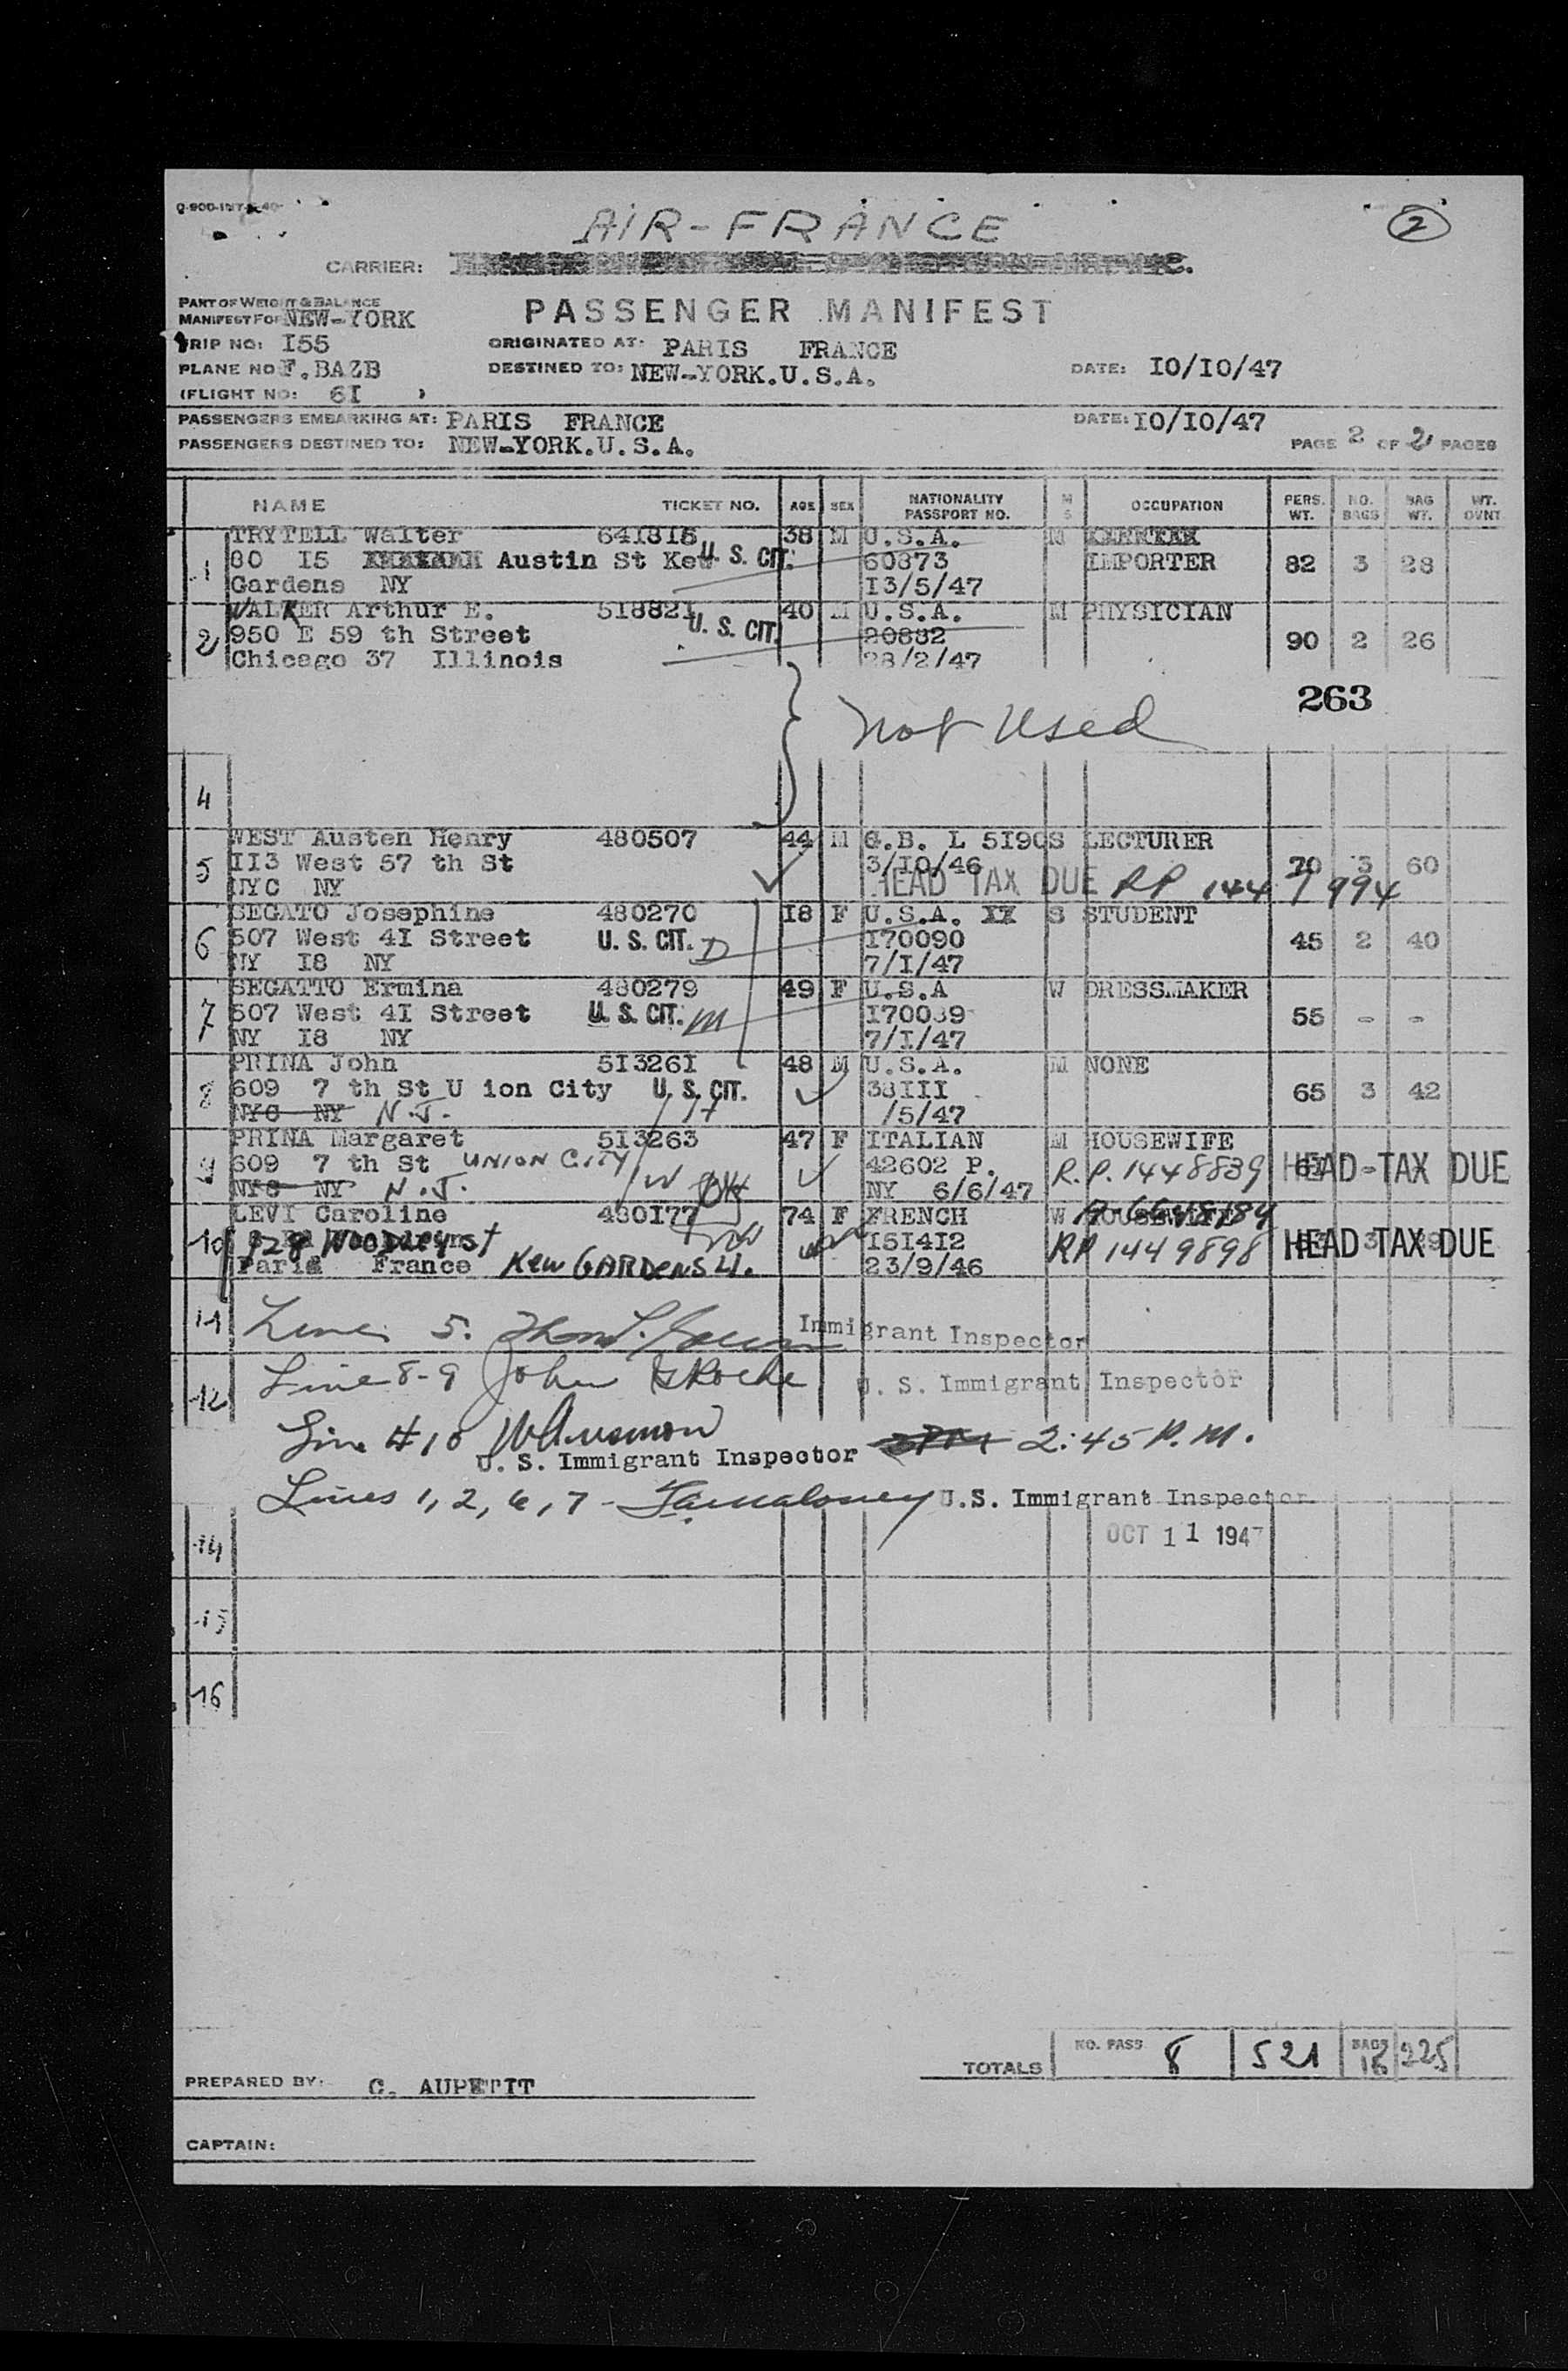 AIR-FRANCE
2
CARRIER:
PART OF WEIGHT & BALANCE
MANIFEST FOR NEW-YORK
PASSENGER MANIFEST
TRIP NO: I55
ORIGINATED AT: PARIS FRANCE
PLANE NO F.BAZB
DESTINED TO: NEW-YORK.U.S.A.
DATE: IO/IO/47
(FLIGHT NO: 6I )
PASSENGERS EMBARKING AT: PARIS FRANCE
DATE: IO/IO/47
PASSENGERS DESTINED TO: NEW-YORK.U.S.A.
PAGE 2 OF 2 PAGES
NAME TICKET NO. AGE SEX NATIONALITY PASSPORT NO. M S OCCUPATION PERS. WT. NO. BAGS BAG WT. WT. OVNT
TRYTELL Walter 641818 38 M U.S.A. M
1 80 I5 Austin St Kew U. S. CIT. 60873 IMPORTER 82 3 28
Gardens NY I3/5/47
WALKER Arthur E. 518821 40 M U.S.A. M PHYSICIAN
2 950 E 59 th Street U. S. CIT. 20882 90 2 26
Chicago 37 Illinois 28/2/47
263
Not Used
4
WEST Austen Henry 480507 44 M G.B. L 5I90 S LECTURER
5 II3 West 57 th St 3/IO/46 70 3 60
NYC NY HEAD TAX DUE RP 1447994
SEGATO Josephine 480270 I8 F U.S.A. XX S STUDENT
6 507 West 4I Street U. S. CIT. D I70090 45 2 40
NY I8 NY 7/I/47
SEGATTO Ermina 480279 49 F U.S.A W DRESSMAKER
7 507 West 4I Street U. S. CIT. M I70089 55 - -
NY I8 NY 7/I/47
PRINA John 5I326I 48 M U.S.A. M NONE
8 609 7 th St U ion City U. S. CIT. 38III 65 3 42
NYC NY N.J. /H /5/47
PRINA Margaret 5I3263 47 F ITALIAN M HOUSEWIFE
9 609 7 th St UNION CITY /W 42602 P. R.P. 1448839 HEAD TAX DUE
NYC NY N.J. OK NY 6/6/47
LEVI Caroline 480I77 74 F FRENCH W HOUSEWIFE
10 I5I4I2 RP 1449898 HEAD TAX DUE
Paris France Kew GARDENS LI. 23/9/46
11 Line 5. Immigrant Inspector
12 Line 8-9 John Roche U. S. Immigrant Inspector
Line #10
U. S. Immigrant Inspector 2:45 P.M.
Lines 1, 2, 6, 7 - U.S. Immigrant Inspector
14 OCT 11 1947
15
16
TOTALS NO. PASS 8 521 BAGS 16 225
PREPARED BY: C. AUPETIT
CAPTAIN: